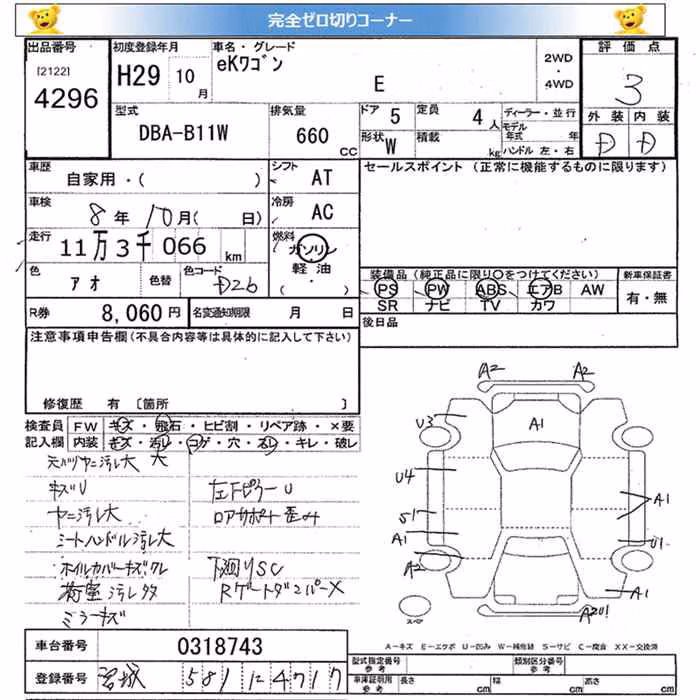 完全ゼロ切りコーナー
出品番号
[2122]
4296
初度登録年月
H29 10月
車名・グレード
eKワゴン
E
2WD
・
4WD
評価点
3
外装 内装
D D
型式
DBA-B11W
排気量
660
CC
ドア 5
定員 4人
形状 W
積載 kg
ディーラー・並行
モデル年式 年
ハンドル 左・右
車歴
自家用・( )
シフト AT
セールスポイント (正常に機能するものに限ります)
車検
8年10月( 日)
冷房 AC
走行
11万3千066km
燃料
ガソリン
軽油
( ・ )
色 アオ
色替
色コード D26
装備品 (純正品に限り〇をつけてください)
PS PW ABS エアB AW
SR ナビ TV カワ
新車保証書
有・無
R券 8,060円
名変通知期限 月 日
後日品
注意事項申告欄(不具合内容等は具体的に記入して下さい)
修復歴 有 〔箇所 〕
検査員記入欄
FW キズ・飛石・ヒビ割・リペア跡・×要
内装 キズ・汚レ・コゲ・穴・スレ・キレ・破レ
キズU
ヤニ汚レ大
左FピラーU
ロアサポート歪み
シートハンドル汚レ大
ホイルカバーキズワレ
下廻りSC
荷室汚レ多
Rゲートダンパー×
ミラーキズ
A2 A2
U3
A1
U4
S1
A1
A1
U1
A2
A1
A2U1
スペア
A-キズ E-エクボ U-凹み W-補修跡 S-サビ C-腐食 XX-交換済
車台番号 0318743
登録番号 宮城 581 に 4717
型式指定番号 参考
類別区分番号 参考
車庫証明用 参考
長さ cm
幅 cm
高さ cm